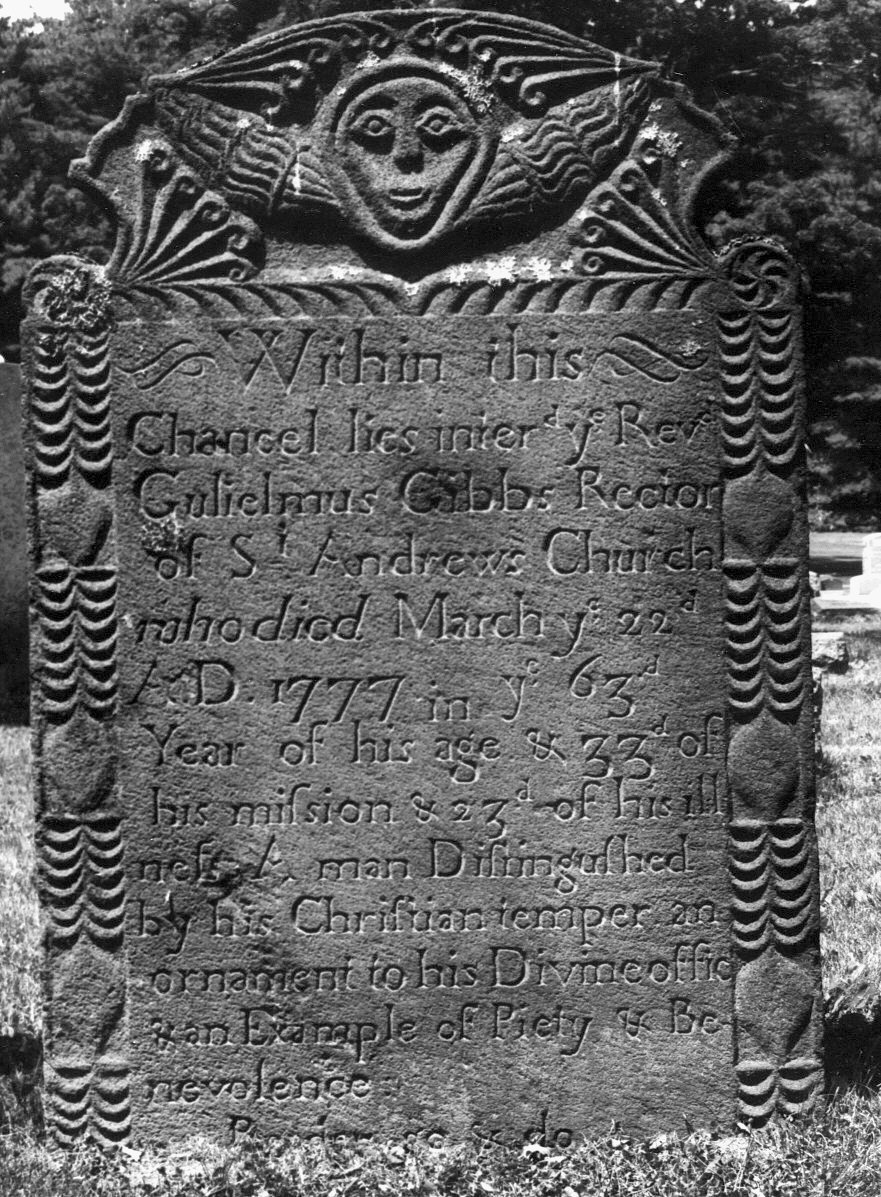 Within this
Chancel lies inter.ᵈ yᵉ Revᵈ
Gulielmus Gibbs Rector
of Sᵗ Andrews Church
who died March yᵉ 22ᵈ
A.D. 1777 in yᵉ 63ᵈ
Year of his age & 33ᵈ of
his miſsion & 23ᵈ of his ill
neſs A man Diſtinguſhed
by his Chriſtian temper an
ornament to his Divine offic
& an Example of Piety & Be-
nevolence
& do